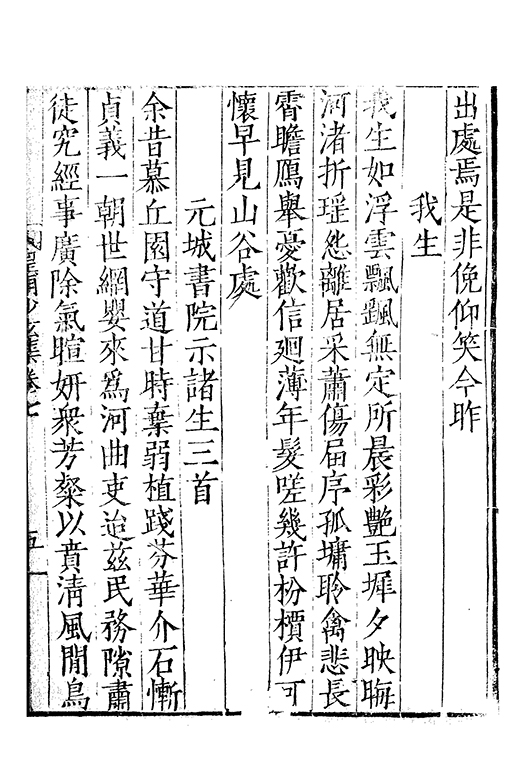 出處焉是非俛仰笑今昨
我生
我生如浮雲飄颻無定所晨彩艷玉墀夕映晦
河渚折瑶怨離居采蕭傷屆序孤墉聆禽悲長
霄瞻鴈舉憂歡信廻薄年髮嗟幾許枌檟伊可
懷早見山谷處
元城書院示諸生三首
余昔慕丘園守道甘時棄弱植踐芬華介石慚
貞義一朝世網嬰來爲河曲吏迨兹民務隙肅
徒究經事廣除氣暄妍衆芳粲以賁清風閒鳥
集卷七
五